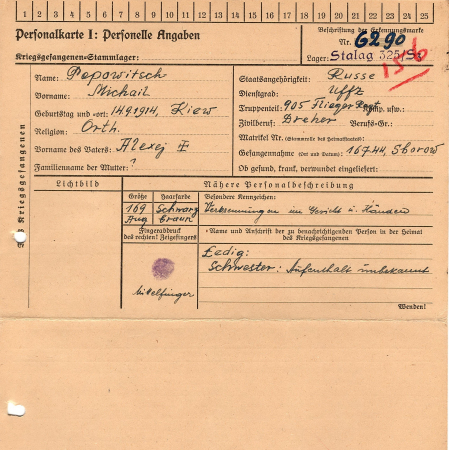 1 2 3 4 5 6 7 8 9 10 11 12 13 14 15 16 17 18 19 20 21 22 23 24 25
Personalkarte I: Personelle Angaben
Kriegsgefangenen-Stammlager:
Beschriftung der Erkennungsmarke
Nr. 6290
Lager: Stalag 325/
Des Kriegsgefangenen
Name: Popowitsch
Vorname: Michail
Geburtstag und -ort: 14.9.1914, Kiew
Religion: Orth.
Vorname des Vaters: Alexej
Familienname der Mutter: ?
Staatsangehörigkeit: Russe
Dienstgrad: Uffz
Truppenteil: 905 Flieger Regt Komp. usw.
Zivilberuf: Dreher Berufs-Gr.:
Matrikel Nr. (Stammrolle des Heimatstaates):
Gefangennahme (Ort und Datum): 16.7.44, Sborow
Ob gesund, krank, verwundet eingeliefert:
Lichtbild
Nähere Personalbeschreibung
Größe Haarfarbe
169 Schwarz
Aug Braun
Besondere Kennzeichen:
Verbrennungen im Gesicht u. Händen
Fingerabdruck
des rechten! Zeigefingers
Mittelfinger
Name und Anschrift der zu benachrichtigenden Person in der Heimat
des Kriegsgefangenen
Ledig:
Schwester: Aufenthalt unbekannt
Wenden!